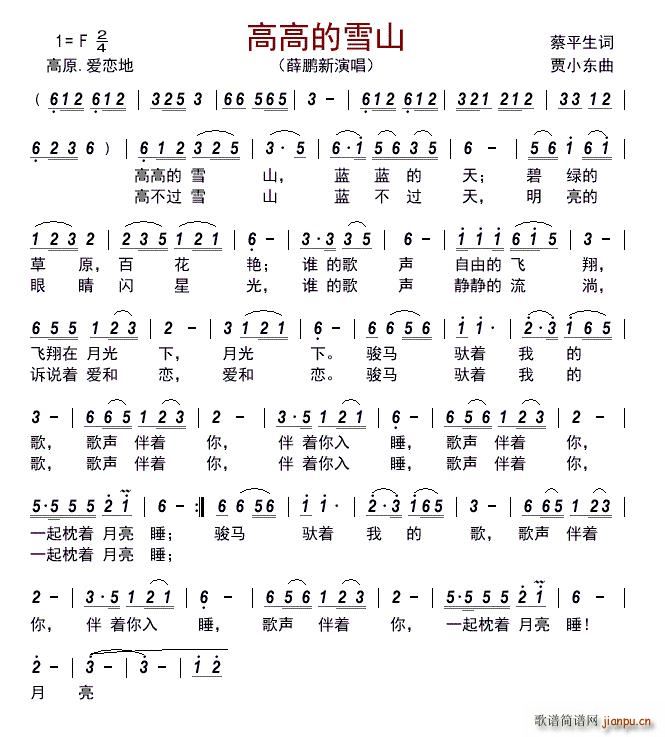 高高的雪山
1= F 2/4
蔡平生词
高原.爱恋地
（薛鹏新演唱）
贾小东曲
( 612 612 | 3253 | 66 565 | 3 - | 612 612 | 321 212 |
6236 ) | 612 325 | 3· 5 | 6·1 5635 | 2 - | 56 1 61 |
高高的 雪 山， 蓝 蓝 的 天； 碧 绿的
高不过 雪 山 蓝 不 过 天， 明 亮的
1232 | 2235 121 | 6 - | 3·3 35 | 6 - | 111 615 |
草 原，百 花 艳； 谁 的歌 声 自由的 飞 翔，
眼 睛 闪 星 光， 谁 的歌 声 静静的 流 淌，
655 123 | 2 - | 3 121 | 6 - | 66 56 | 11· | 2·3 165 |
飞翔在 月光 下， 月光 下。 骏马 驮着 我 的
诉说着 爱和 恋， 爱和 恋。 骏马 驮着 我 的
3 - | 665 123 | 2 - | 3·5 121 | 6 - | 665 123 | 2 - |
歌， 歌声 伴着 你， 伴 着你入 睡， 歌声 伴着 你，
歌， 歌声 伴着 你， 伴 着你入 睡， 歌声 伴着 你，
5·555 21 | 6 - :| 66 56 | 11· | 2·3 165 | 3 - | 665 123 |
一起枕着 月亮 睡； 骏马 驮着 我 的 歌， 歌声 伴着
一起枕着 月亮 睡；
2 - | 3·5 121 | 6 - | 665 123 | 2 - | 5·555 21 | 6 - |
你， 伴 着你入 睡， 歌声 伴着 你， 一起枕着 月亮 睡！
2 - | 3 - | 3 - | 12
月 亮
歌谱简谱网
jianpu.cn